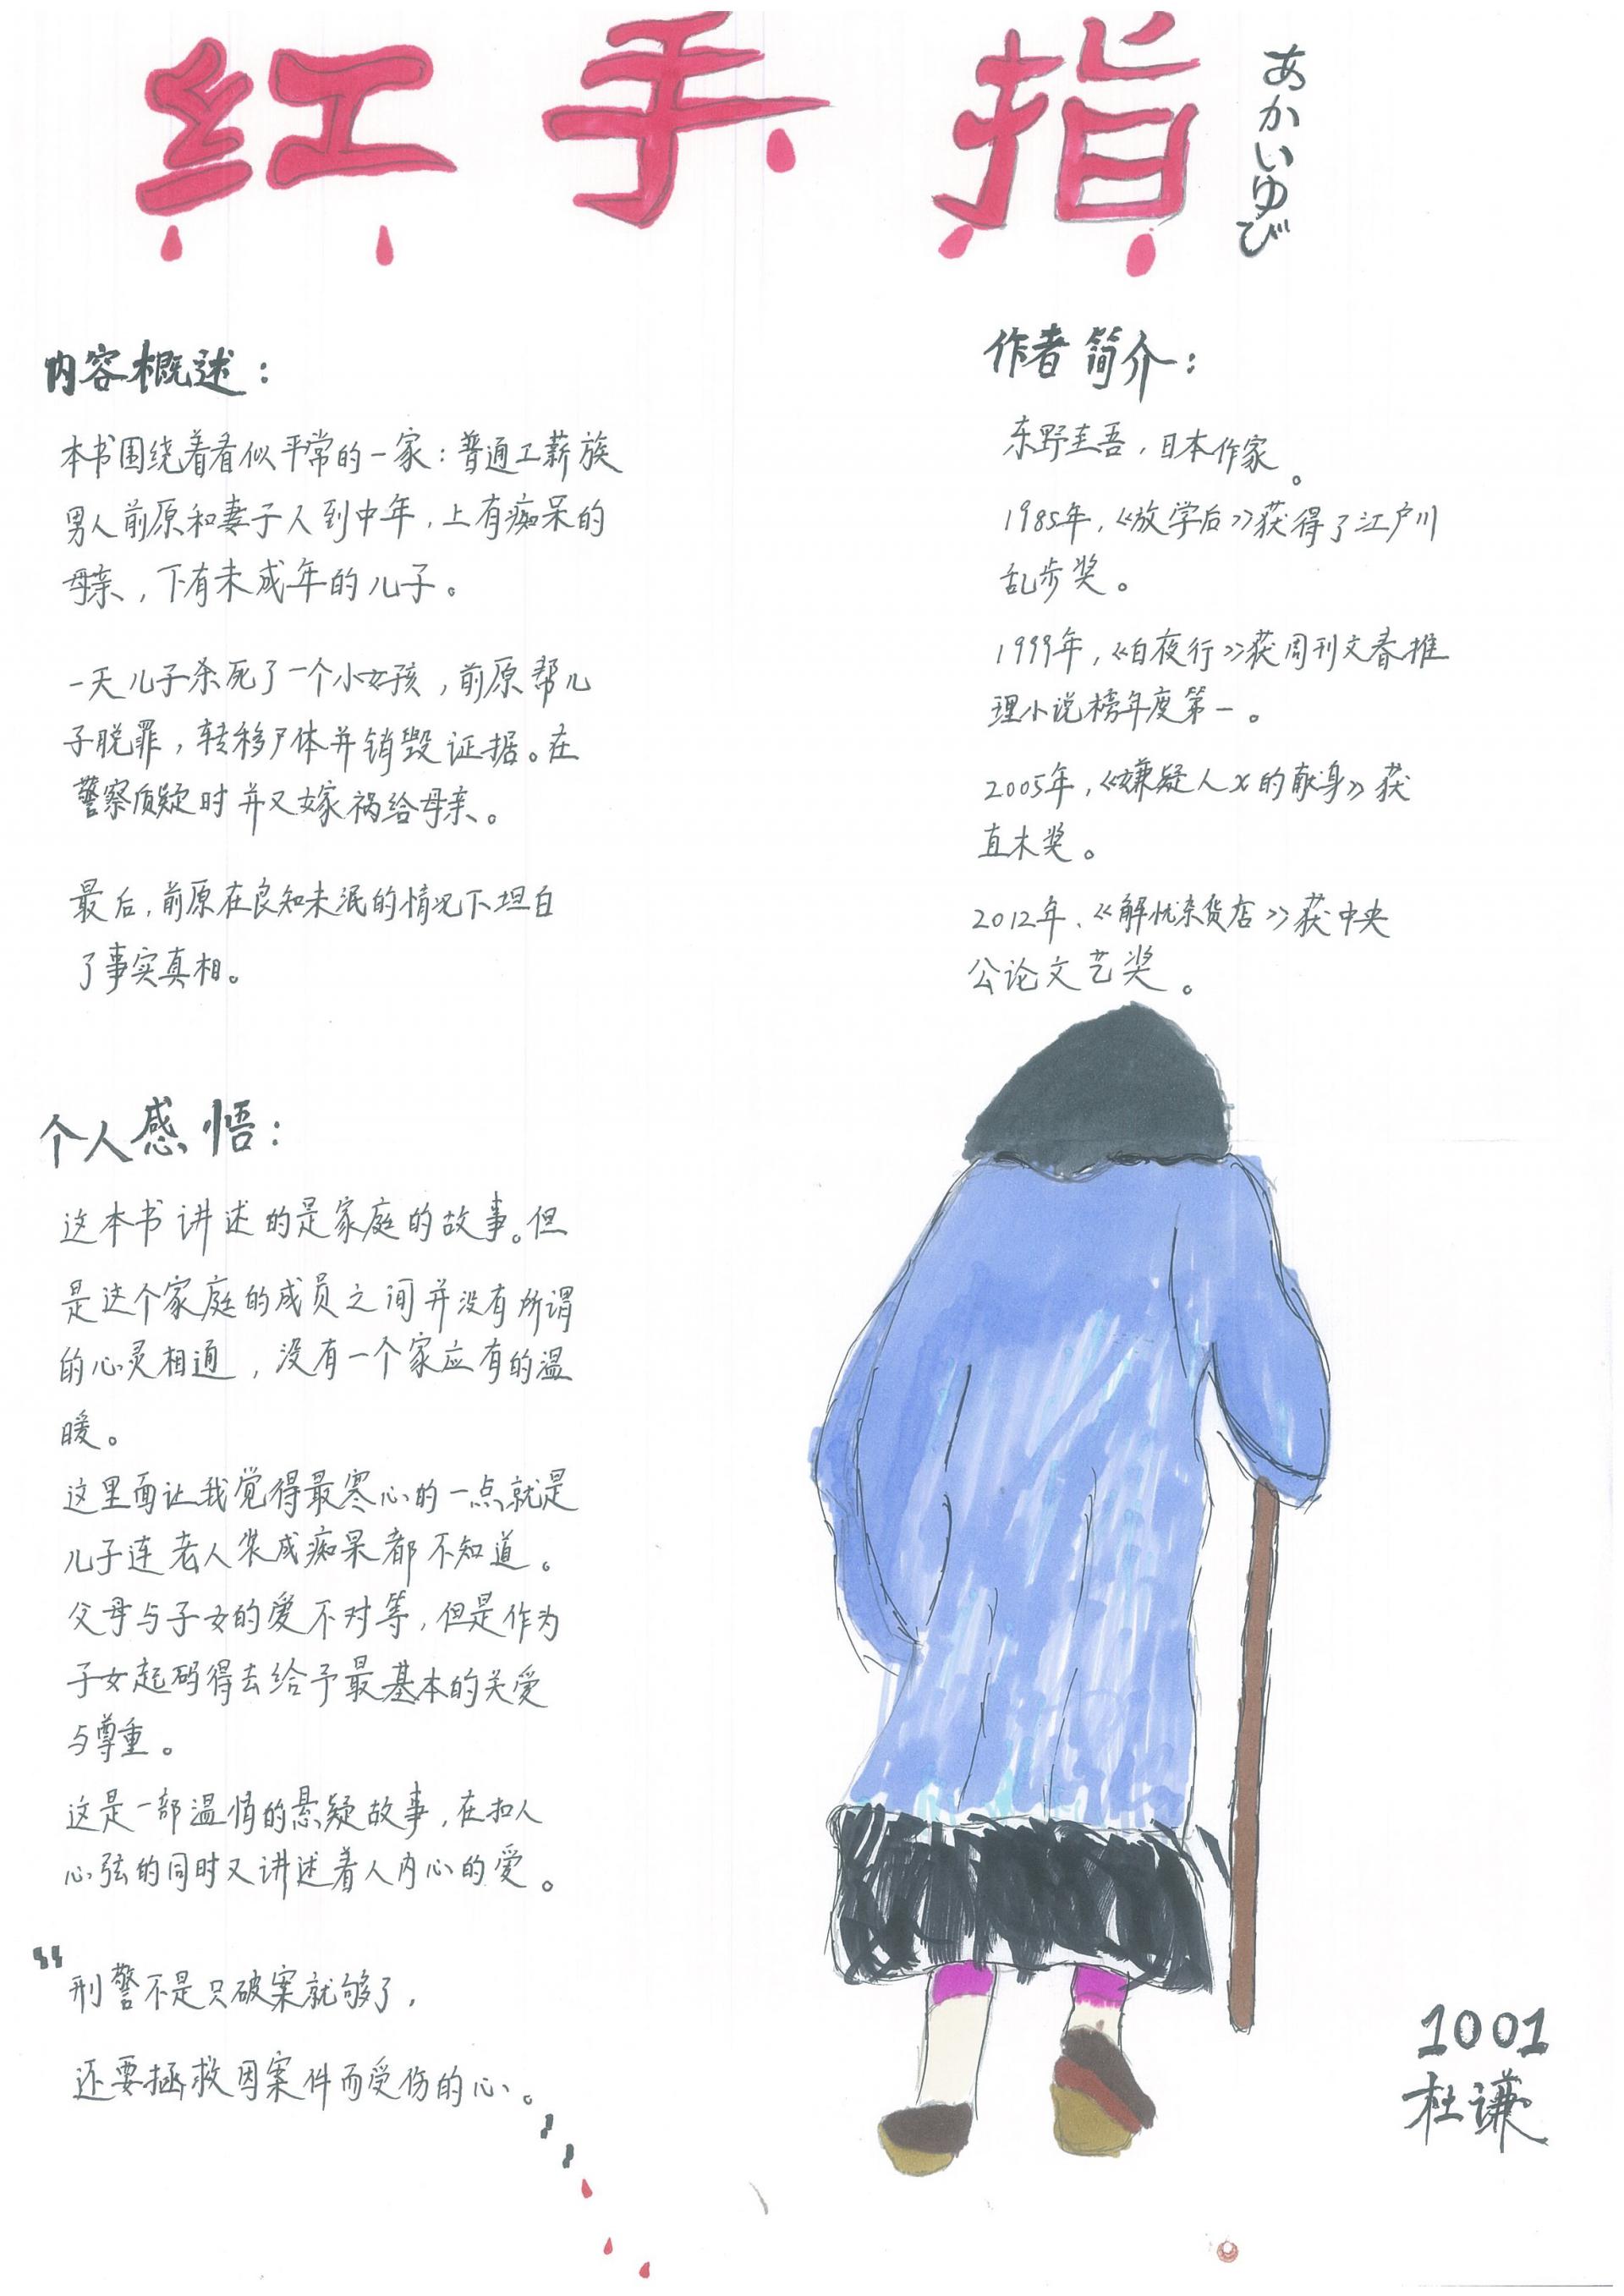 红手指
あかいゆび
内容概述：
本书围绕着看似平常的一家：普通工薪族
男人前原和妻子人到中年，上有痴呆的
母亲，下有未成年的儿子。
一天儿子杀死了一个小女孩，前原帮儿
子脱罪，转移尸体并销毁证据。在
警察质疑时并又嫁祸给母亲。
最后，前原在良知未泯的情况下坦白
了事实真相。
作者简介：
东野圭吾，日本作家。
1985年，《放学后》获得了江户川
乱步奖。
1999年，《白夜行》获周刊文春推
理小说榜年度第一。
2005年，《嫌疑人x的献身》获
直木奖。
2012年、《解忧杂货店》获中央
公论文艺奖。
个人感悟：
这本书讲述的是家庭的故事。但
是这个家庭的成员之间并没有所谓
的心灵相通，没有一个家应有的温
暖。
这里面让我觉得最寒心的一点就是
儿子连老人装成痴呆都不知道。
父母与子女的爱不对等，但是作为
子女起码得去给予最基本的关爱
与尊重。
这是一部温情的悬疑故事，在扣人
心弦的同时又讲述着人内心的爱。
“刑警不是只破案就够了，
还要拯救因案件而受伤的心。”
1001
杜谦